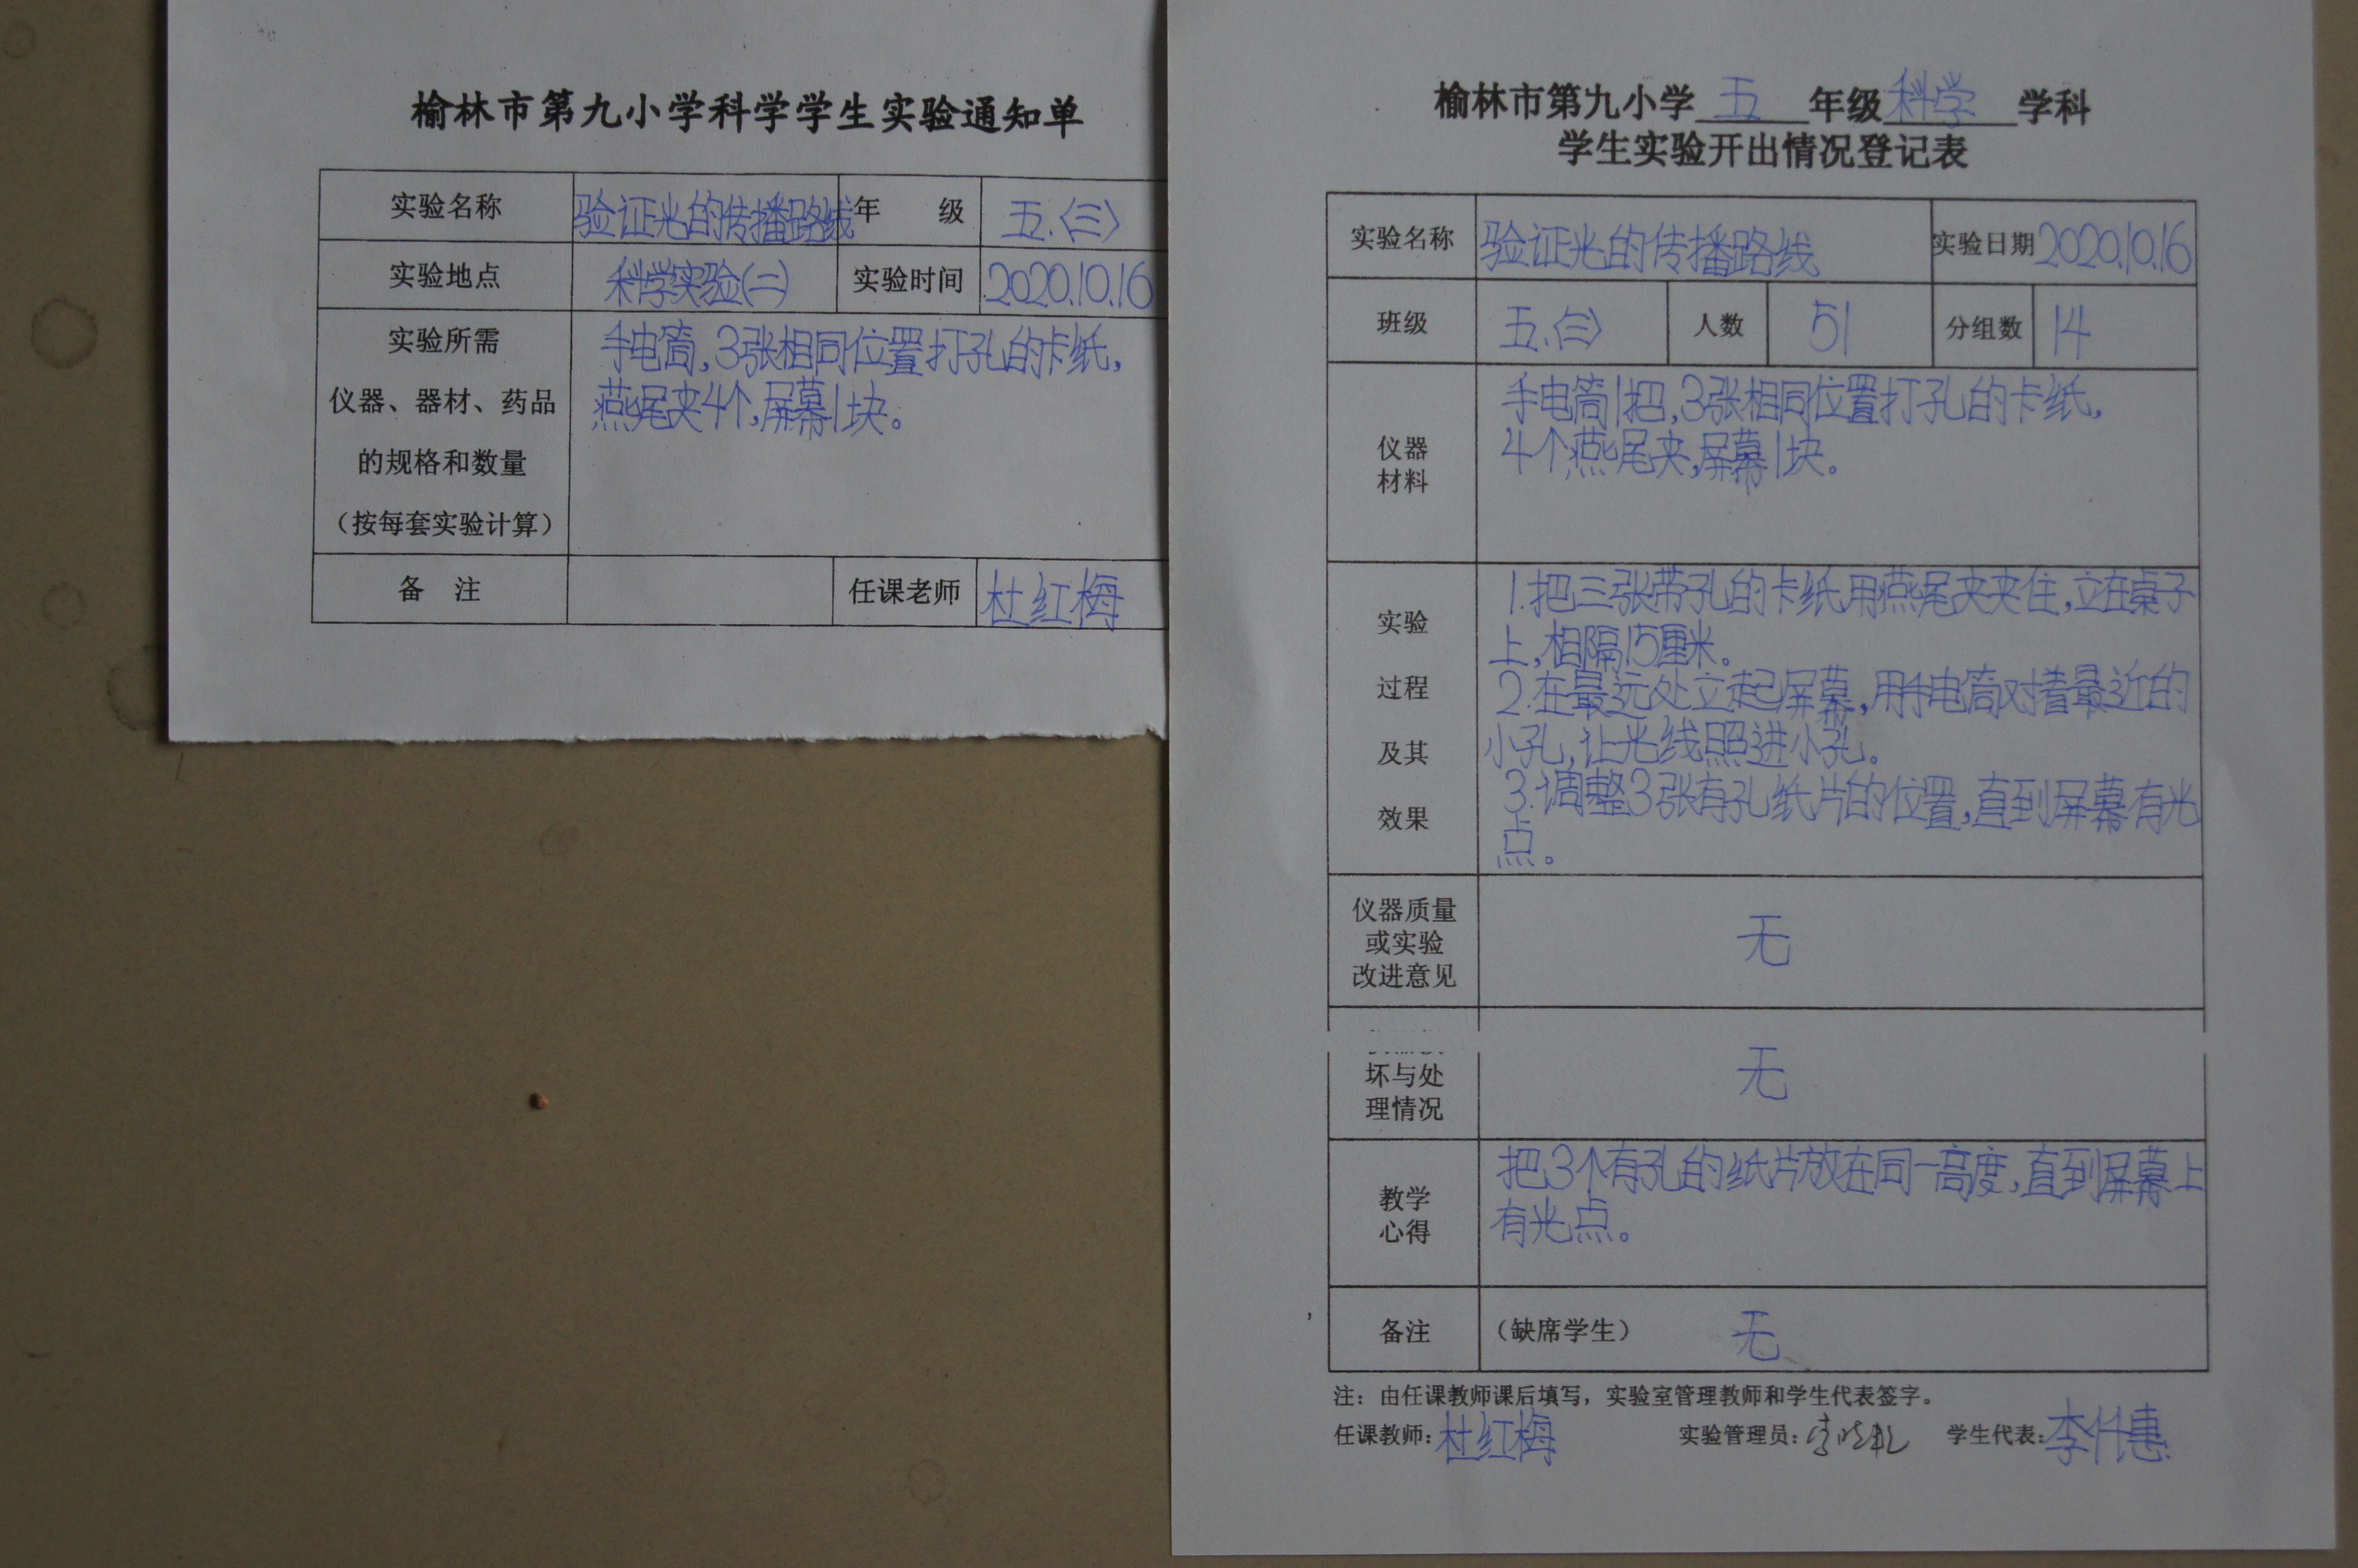 榆林市第九小学科学学生实验通知单
实验名称 验证光的传播路线 年 级 五.〈三〉
实验地点 科学实验(二) 实验时间 2020.10.16
实验所需
仪器、器材、药品
的规格和数量
（按每套实验计算）
手电筒,3张相同位置打孔的卡纸,
燕尾夹4个,屏幕1块。
备 注 任课老师 杜红梅
榆林市第九小学 五 年级 科学 学科
学生实验开出情况登记表
实验名称 验证光的传播路线 实验日期 2020.10.16
班级 五.〈三〉 人数 51 分组数 14
仪器
材料
手电筒1把,3张相同位置打孔的卡纸,
4个燕尾夹,屏幕1块。
实验
过程
及其
效果
1.把三张带孔的卡纸用燕尾夹夹住,立在桌子
上,相隔15厘米。
2.在最远处立起屏幕,用手电筒对着最近的
小孔,让光线照进小孔。
3.调整3张有孔纸片的位置,直到屏幕有光
点。
仪器质量
或实验
改进意见
无
坏与处
理情况
无
教学
心得
把3个有孔的纸片放在同一高度,直到屏幕上
有光点。
备注 （缺席学生） 无
注：由任课教师课后填写，实验室管理教师和学生代表签字。
任课教师: 杜红梅 实验管理员: 李 学生代表: 李